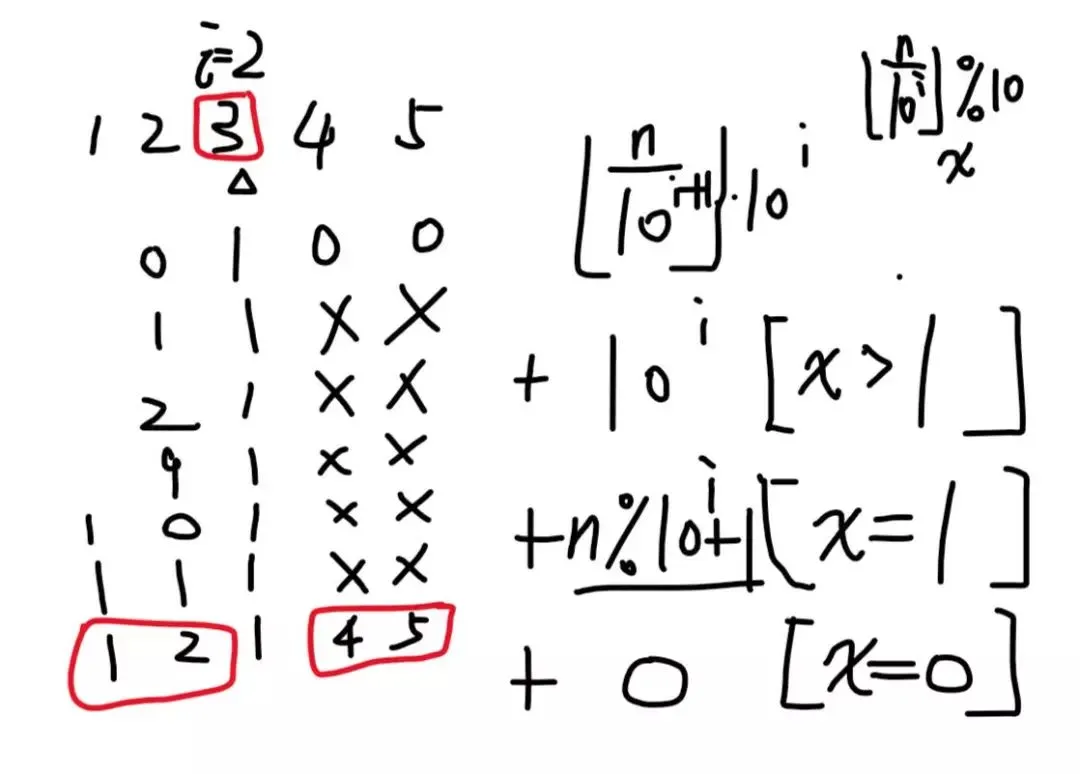 i=2
1 2 3 4 5
Δ
0 1 0 0
1 1 X X
2 1 X X
9 1 X X
1 0 1 X X
1 1 1 X X
1 2 1 4 5
⌊n/10^i⌋%10
x
⌊n/10^{i+1}⌋·10^i
+ 10^i [x>1]
+n%10^i+1[x=1]
+ 0 [x=0]